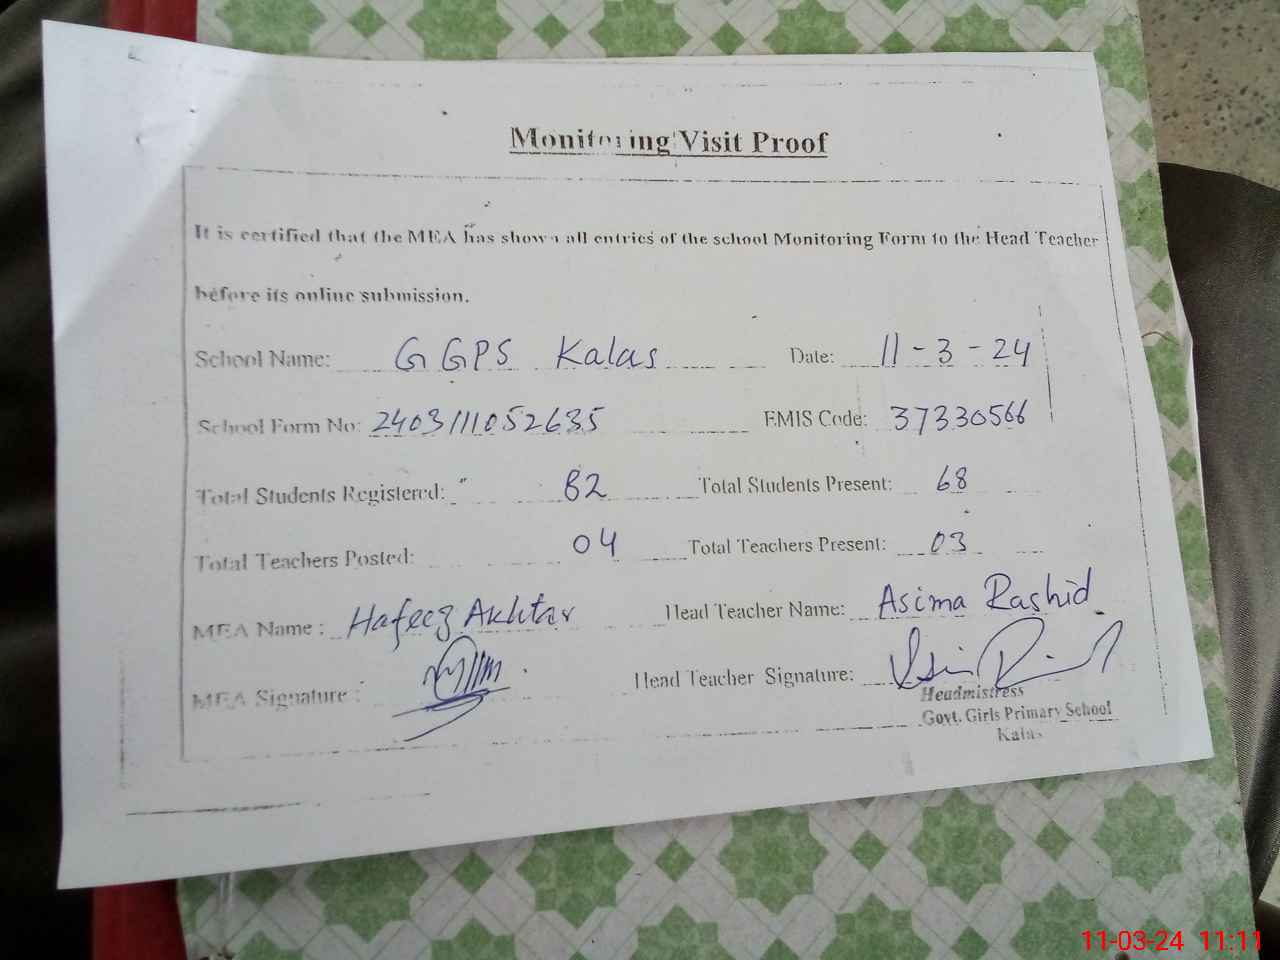 Monitoring Visit Proof
It is certified that the MEA has shown all entries of the school Monitoring Form to the Head Teacher
before its online submission.
School Name: GGPS Kalas Date: 11-3-24
School Form No: 2403111052635 EMIS Code: 37330566
Total Students Registered: 82 Total Students Present: 68
Total Teachers Posted: 04 Total Teachers Present: 03
MEA Name: Hafeez Akhtar Head Teacher Name: Asima Rashid
MEA Signature: Head Teacher Signature:
Headmistress
Govt. Girls Primary School
Kalas
11-03-24 11:11